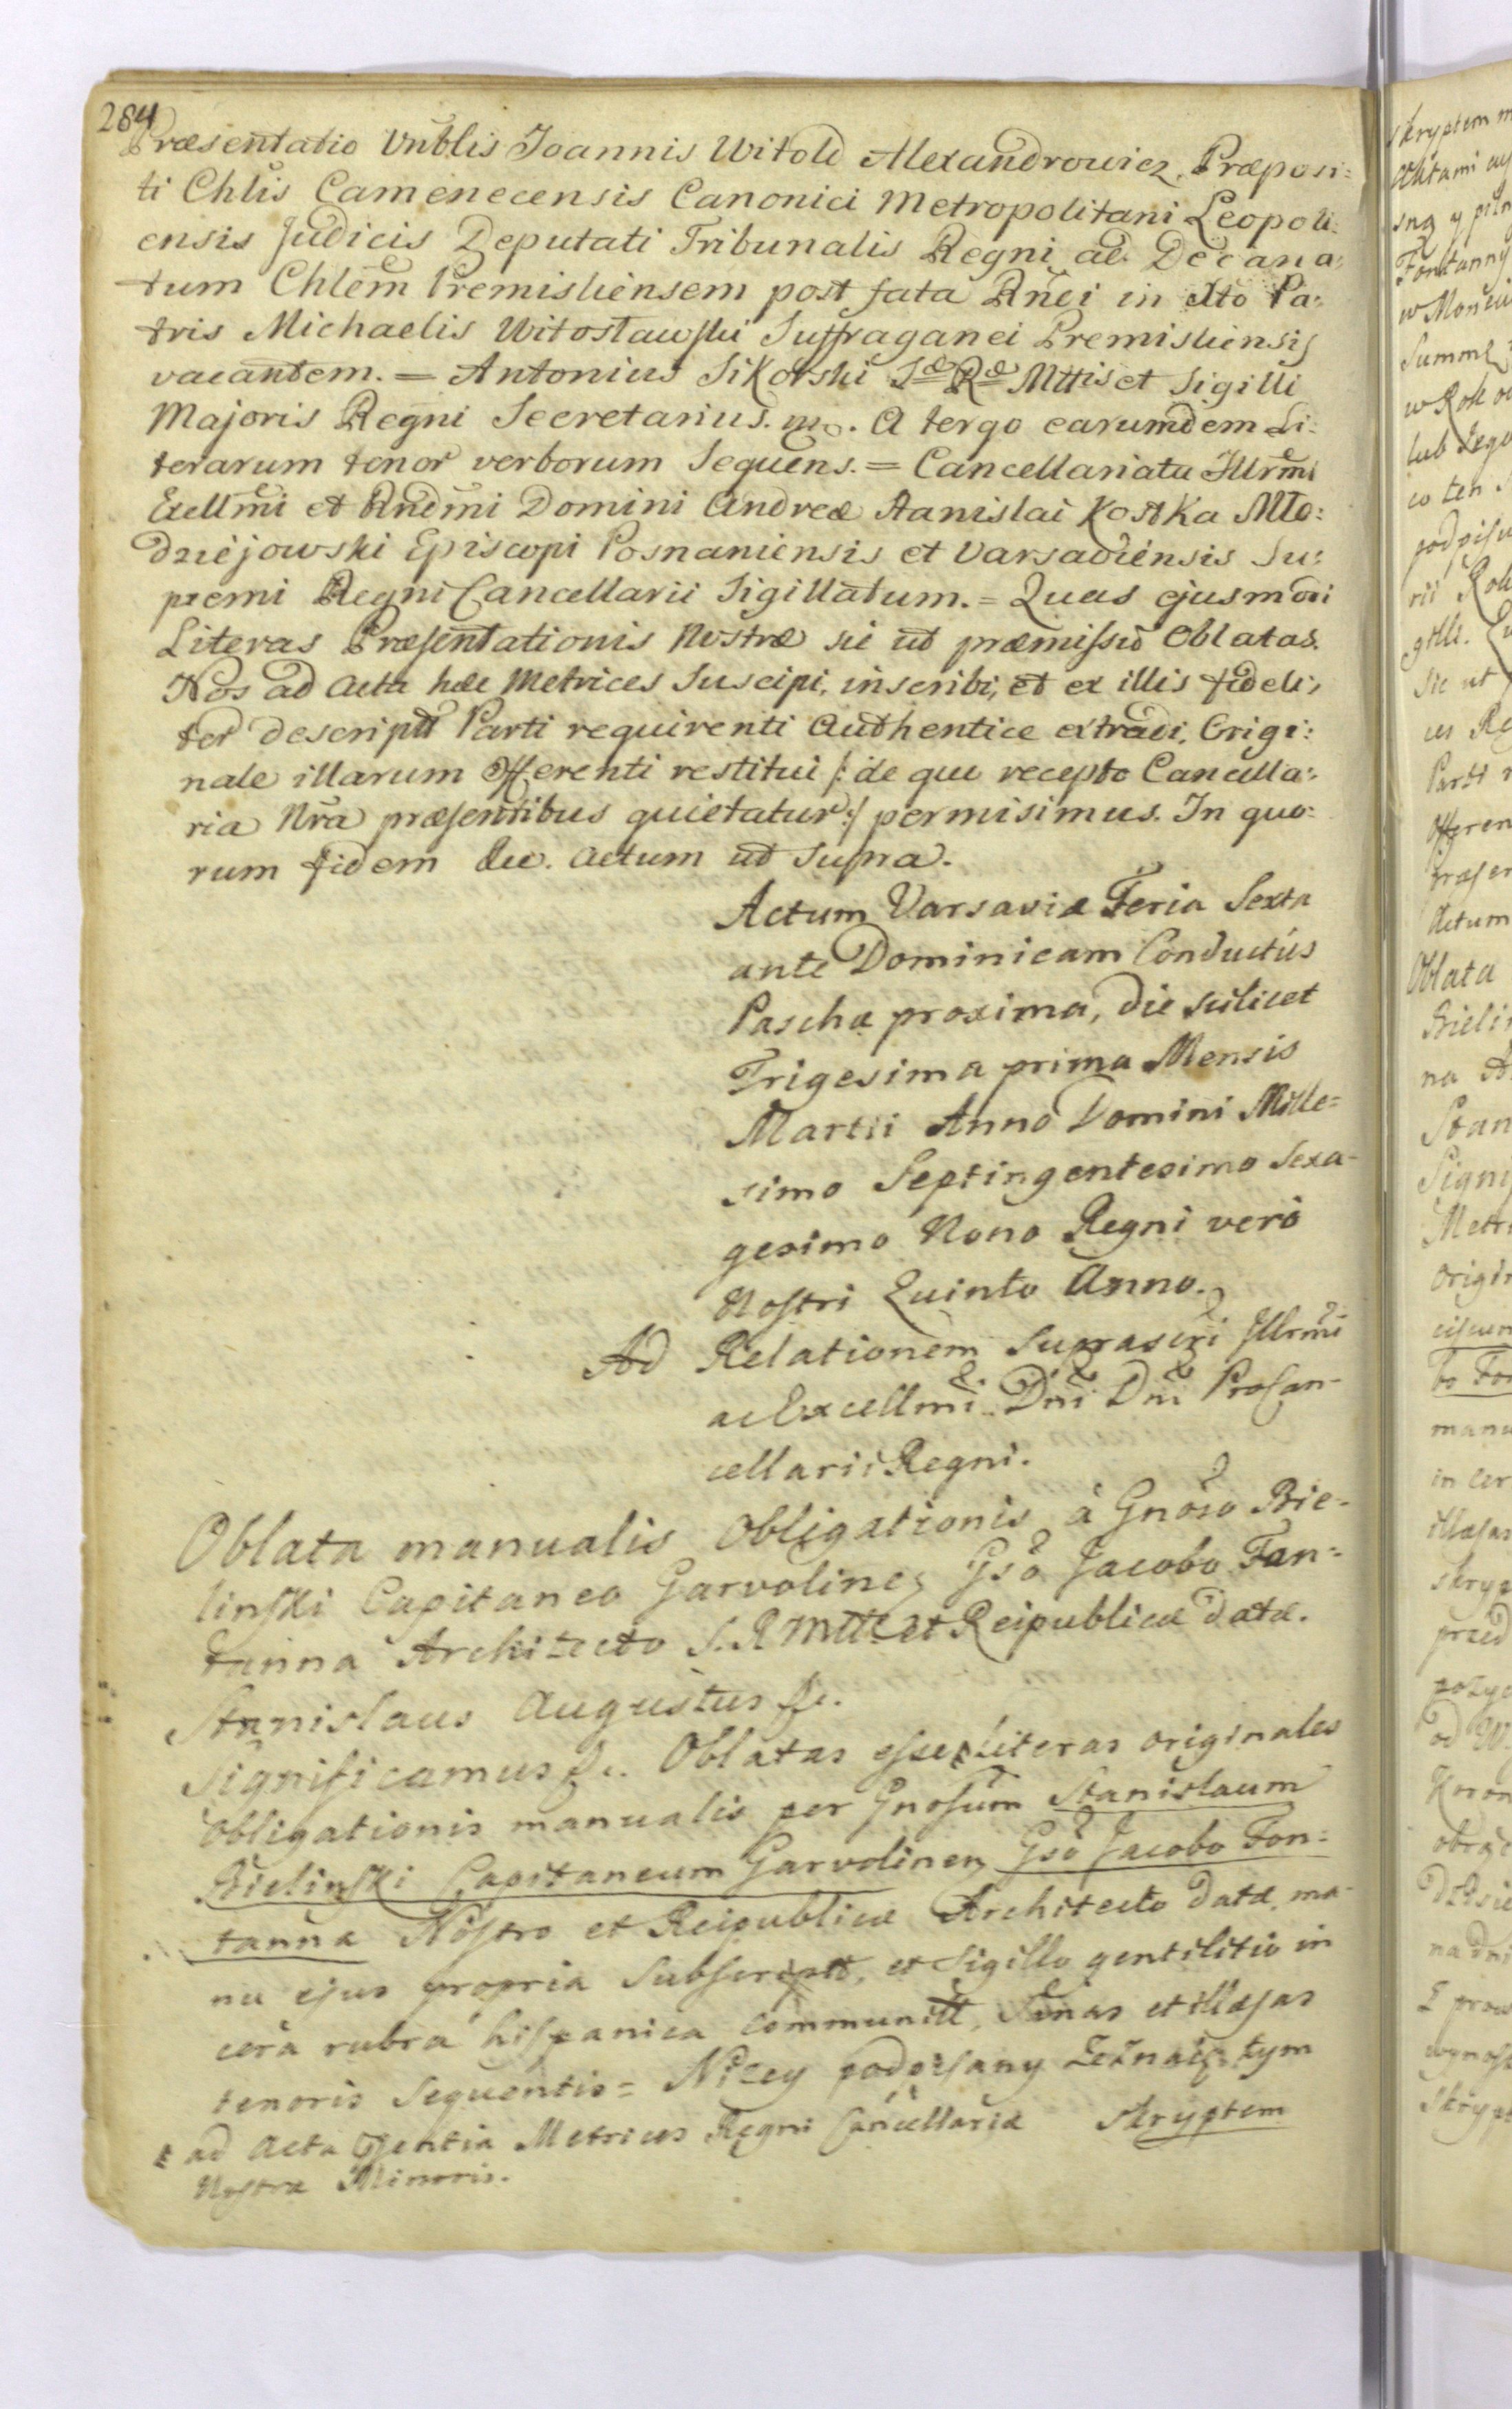 284
Præsentatio Vnblis Joannis Witold Alexandrowicz, Præposi:
ti Chlis Camenecensis Canonici Metropolitani Leopoli:
ensis Judicis Deputati Tribunalis Regni ad Decana:
tum Chlem Premisliensem post fata Rndi in Xto Pa:
tris Michaelis Witosławski Suffraganei Premisliensis
vacantem. = Antonius Sikorski Sæ Ræ Mttis et Sigilli
Majoris Regni Secretarius. mp. A tergo earumdem Li:
terarum tenor verborum Sequens. = Cancellariatu Illrmi
Excllmi et Rndmi Domini Andreæ Stanislai Kostka Mło:
dziejowski Episcopi Posnaniensis et Varsaviensis Su:
premi Regni Cancellarii Sigillatum. = Quas ejusmodi
Literas Præsentationis Nostræ sic ut præmissū Oblatas.
Nos ad Acta hæc Metrices Suscipi, inscribi, et ex illis fideli:
ter descriptt Parti requirenti Authentice extradi, Origi:
nale illarum Offerenti restitui /: de quo recepto Cancella:
ria Nrā præsentibus quietatur :/ permisimus. In quo:
rum fidem &c. Actum ut Supra.
Actum Varsaviæ Feria Sexta
ante Dominicam Conductûs
Paschæ proxima, die scilicet
Trigesima prima Mensis
Martii Anno Domini Mille=
simo Septingentesimo Sexa-
gesimo Nono Regni verò
Nostri Quinto Anno.
Ad Relationem Suprascri Illrmi
ac Excellmi Dni Dni ProCan-
cellarii Regni.
Oblata manualis Obligationis à Gnoso Bie-
linski Capitaneo Garvolinen Gso Jacobo Fon=
tanna Architecto S. R Mttis et Reipublicæ datæ.
Stanislaus Augustus &c.
Significamus &c. Oblatas esse Literas originales
Obligationis manualis per Gnosum Stanislaum
Bielinski Capitaneum Garvolinen Gso Jacobo Fon=
tanna Nostro et Reipublicæ Architecto datæ, ma-
nu ejus propria Subscriptt, et Sigillo gentilitio in
cerâ rubrâ hispanica communitt, Sanas et illæsas
tenoris Sequentis = Niżey podpisany Zeznaię tym
Skryptem
ad Acta Metrices Regni Cancellariæ
Nostræ Minoris.